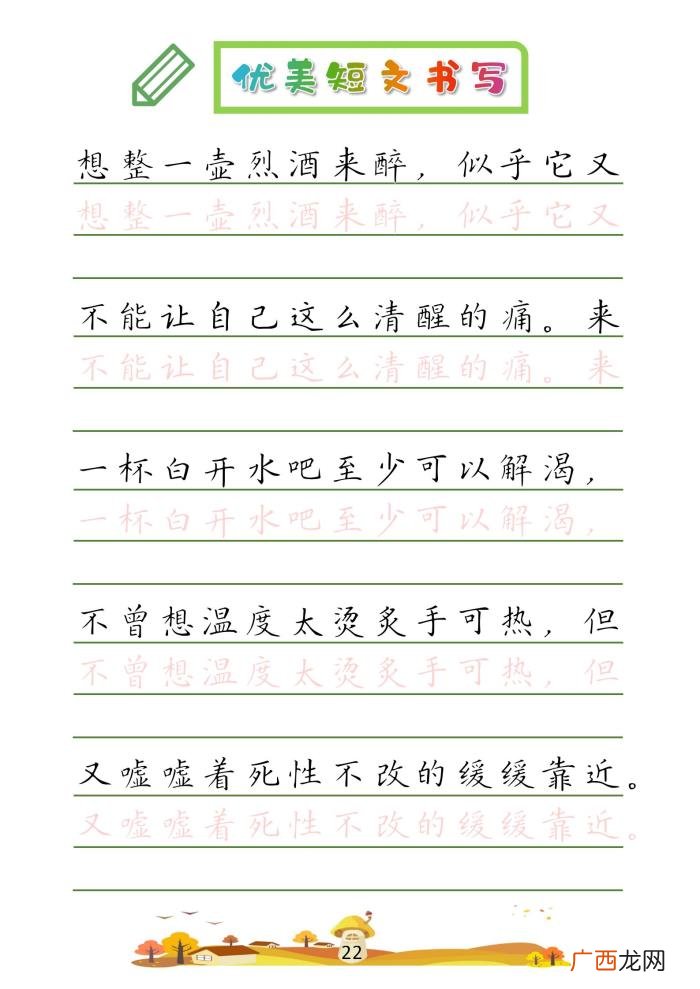 优美短文书写
想整一壶烈酒来醉，似乎它又
想整一壶烈酒来醉，似乎它又
不能让自己这么清醒的痛。来
不能让自己这么清醒的痛。来
一杯白开水吧至少可以解渴，
一杯白开水吧至少可以解渴，
不曾想温度太烫炙手可热，但
不曾想温度太烫炙手可热，但
又嘘嘘着死性不改的缓缓靠近。
又嘘嘘着死性不改的缓缓靠近。
22
广西龙网